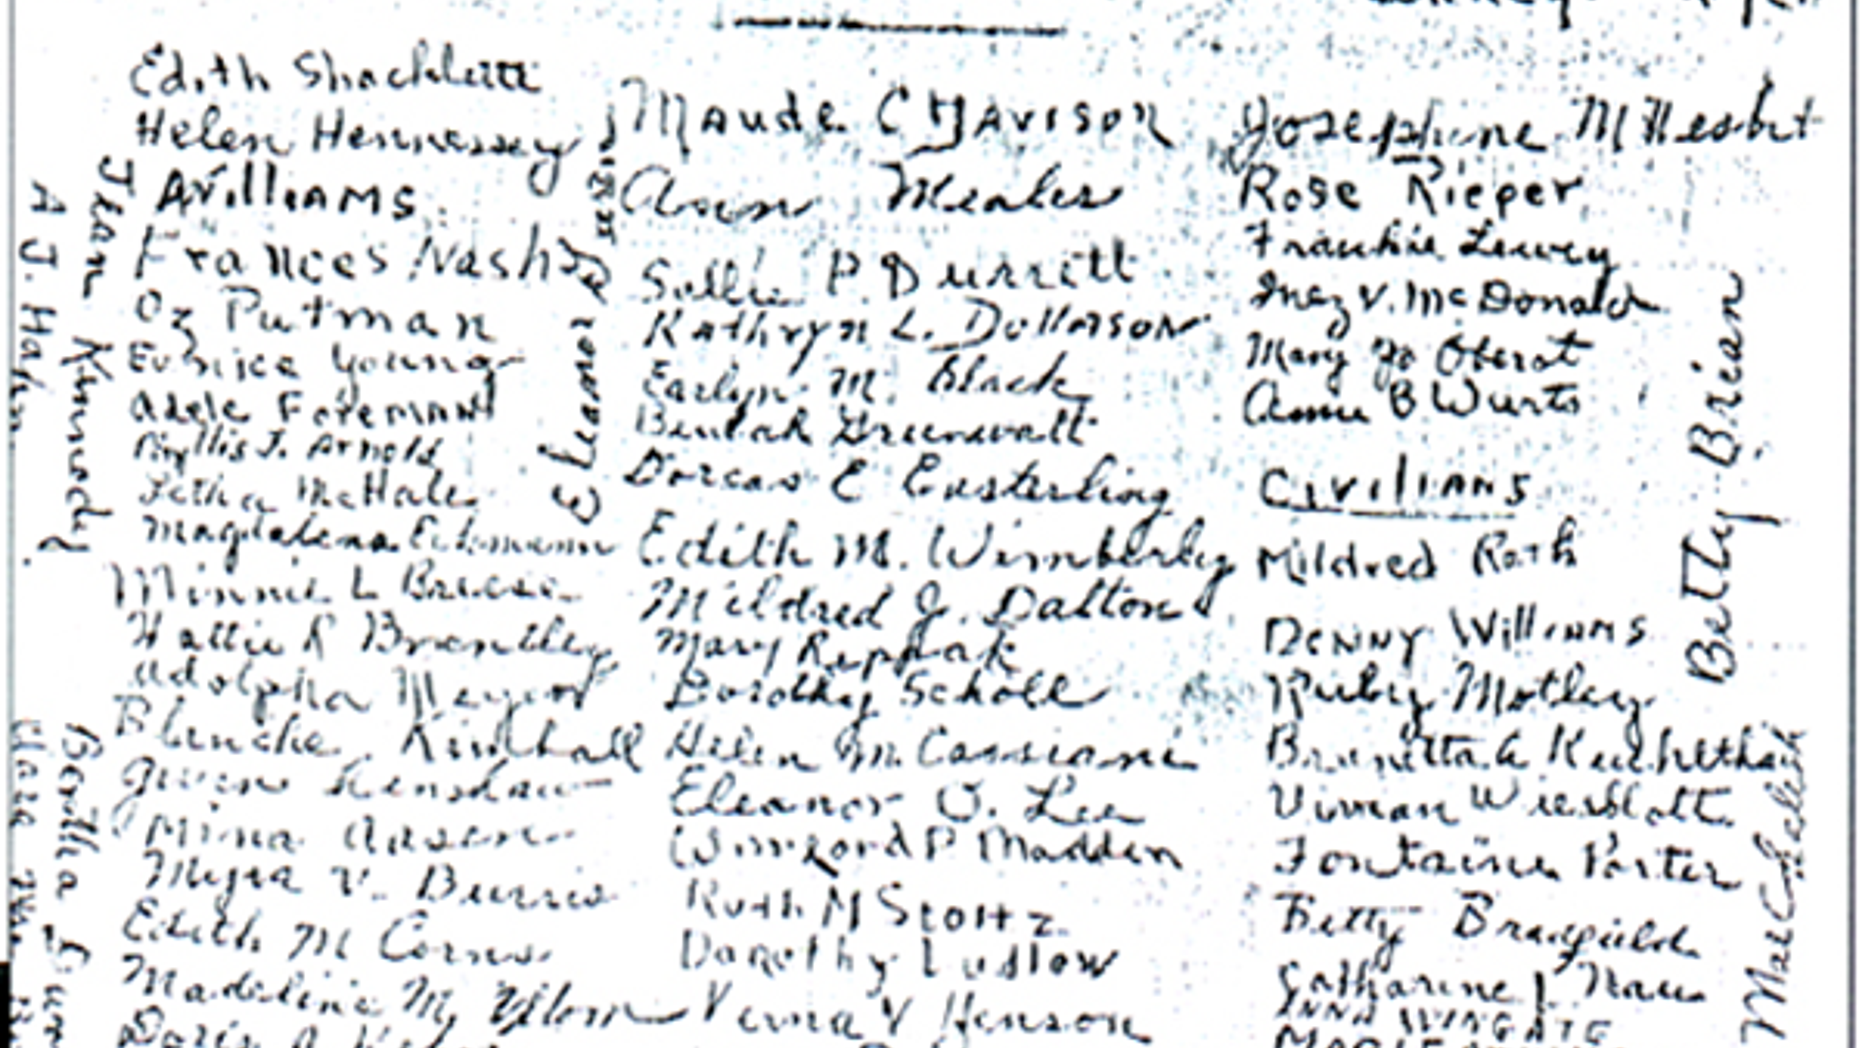 Edith Shacklette
Helen Hennessey
A Williams
Frances Nash
Oz Putman
Eunice Young
Adele Foreman
Phyllis J. Arnold
Letha McHale
Magdalena Eckmann
Minnie L Breese
Hattie R Brantley
Adolpha Meyer
Blanche Kimball
Gwen Henshaw
Mina Aasen
Myra V. Burris
Edith M Corns
Madeline M. Ullom
Doris A.
Jean Kennedy
A J. Hahn
Bertha
Clara
Eleanor
Maude C Davison
Ann Mealer
Sallie P. Durrett
Kathryn L. Dollason
Earlyn M. Black
Beulah Greenwalt
Dorcas E Easterling
Edith M. Wimberly
Mildred J. Dalton
Mary Reppak
Dorothy Scholl
Helen M. Cassiani
Eleanor O. Lee
Winifred P Madden
Ruth M Stoltz
Dorothy Ludlow
Verna V Henson
Josephine M Nesbit
Rose Rieper
Frankie Lewey
Inez V. McDonald
Mary Jo Oberst
Anne B Wurts
Civilians
Mildred Roth
Denny Williams
Ruby Motley
Brunetta A
Vivian Weisblatt
Fontaine Porter
Betty Bradfield
Catharine L Nau
ANNA WINGATE
Betty Brian
Mae